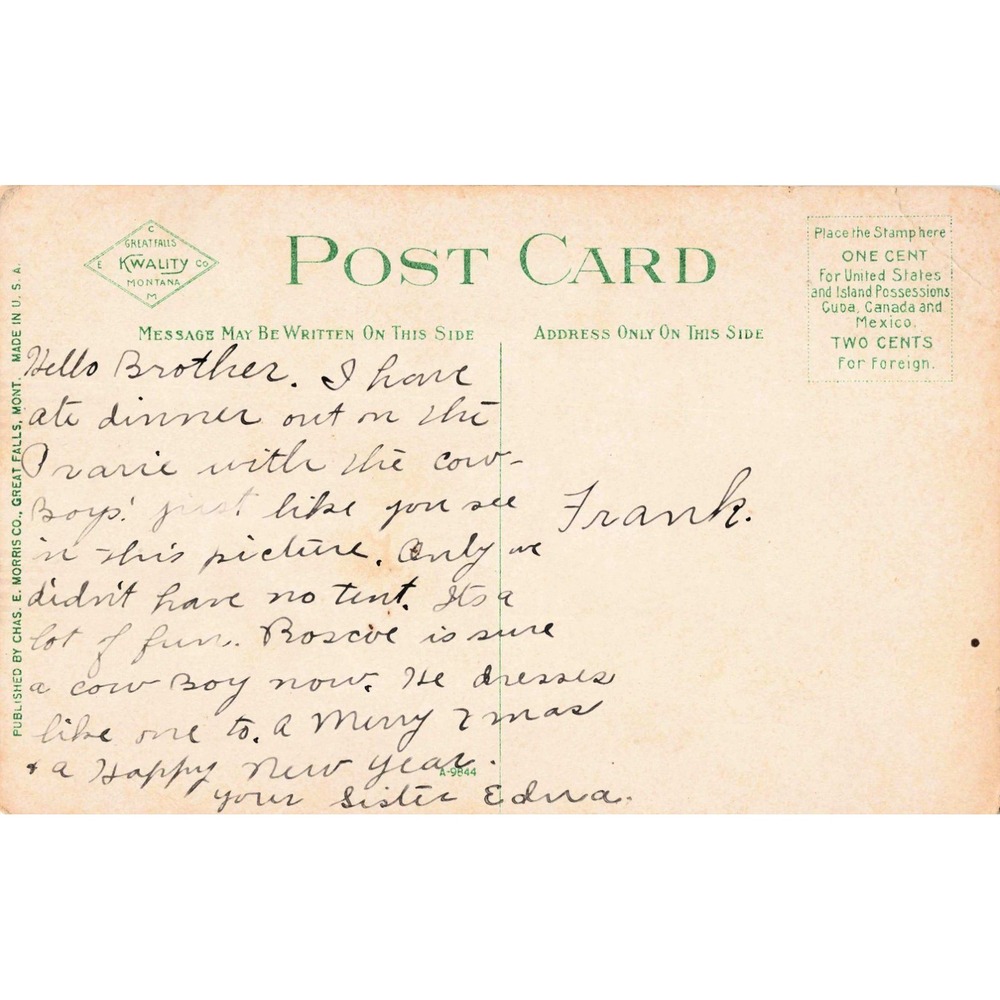 C
GREAT FALLS
E KWALITY CO
MONTANA
M
POST CARD
Place the Stamp here
ONE CENT
For United States
and Island Possessions
Cuba, Canada and
Mexico.
TWO CENTS
For Foreign.
MESSAGE MAY BE WRITTEN ON THIS SIDE
ADDRESS ONLY ON THIS SIDE
PUBLISHED BY CHAS. E. MORRIS CO., GREAT FALLS, MONT. MADE IN U. S. A.
Hello Brother. I have
ate dinner out on the
Prarie with the cow-
Boys! just like you see
in this picture. Only we
didn't have no tent. Its a
lot of fun. Roscoe is sure
a cow Boy now. He dresses
like one to. A Merry Xmas
& a Happy New Year.
your Sister Edna.
A-9844
Frank.